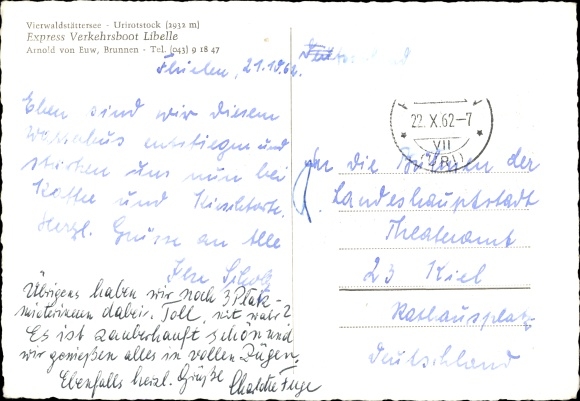 Vierwaldstättersee - Urirotstock (2932 m)
Express Verkehrsboot Libelle
Arnold von Euw, Brunnen - Tel. (043) 9 18 47
Flüelen, 21.10.62.
Eben sind wir diesem
entstiegen und
stärken uns nun bei
Kaffee und Kirschtorte.
Herzl. Grüsse an Alle
Ilse Scholz
Übrigens haben wir noch 3 Platz-
mieterinnen dabei. Toll, nit wahr?
Es ist zauberhaft schön und
wir genießen alles in vollen Zügen.
Ebenfalls herzl. Grüße Charlotte Fuge
22.X.62-7
VII
(URI)
An die Bühnen der
Landeshauptstadt
Theateramt
23 Kiel
Rathausplatz
Deutschland